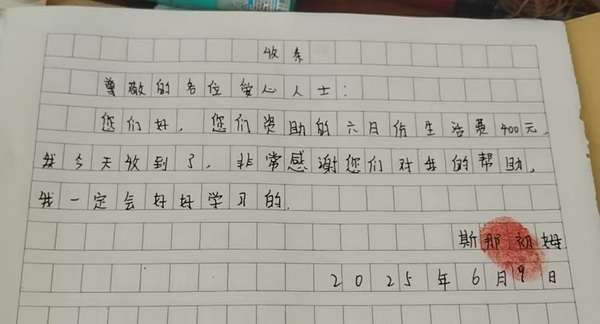 收条
尊敬的各位爱心人士：
您们好，您们资助的六月份生活费400元，
我今天收到了，非常感谢您们对我的帮助，
我一定会好好学习的.
斯那初姆
2025年6月9日